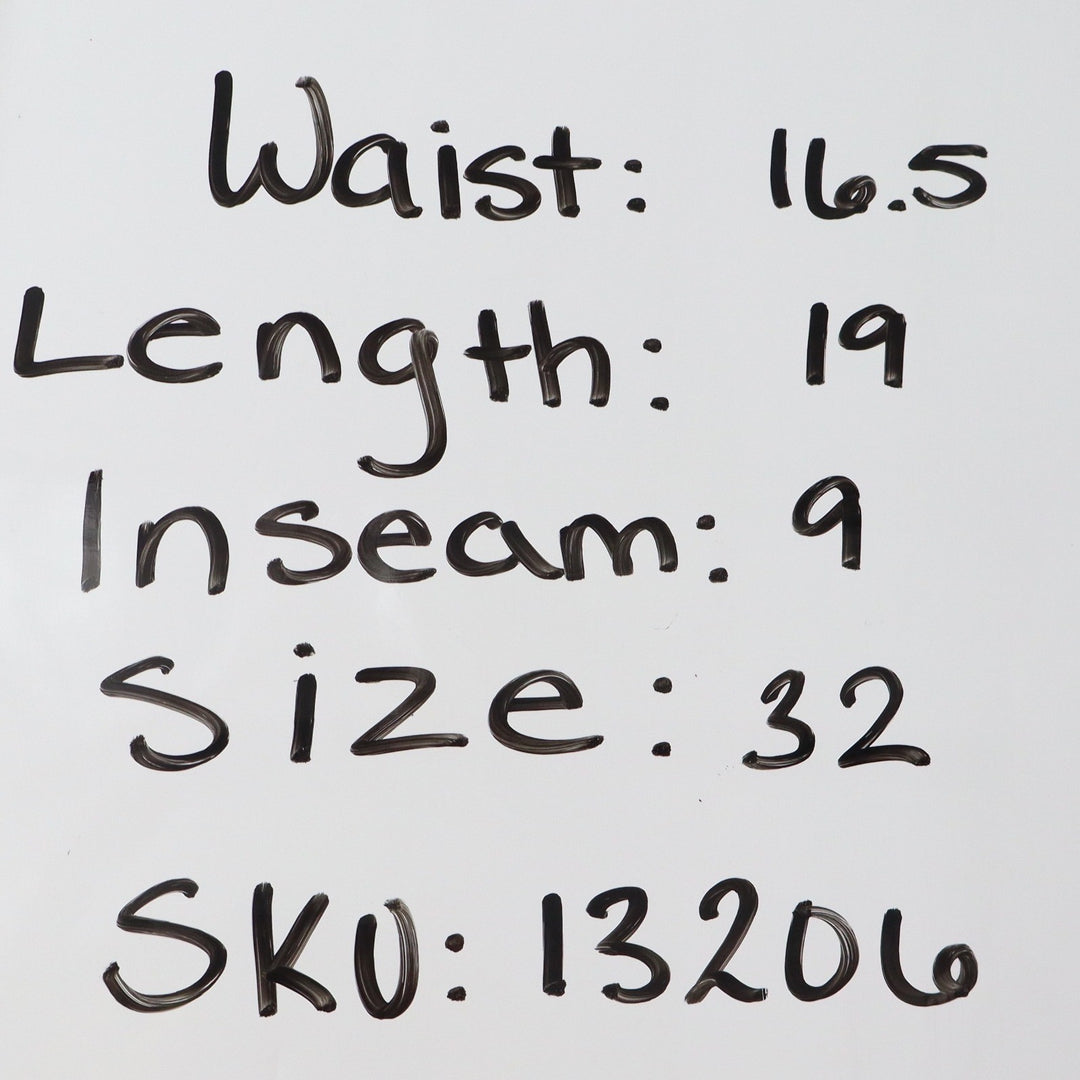 Waist: 16.5
Length: 19
Inseam: 9
Size: 32
SKU: 13206